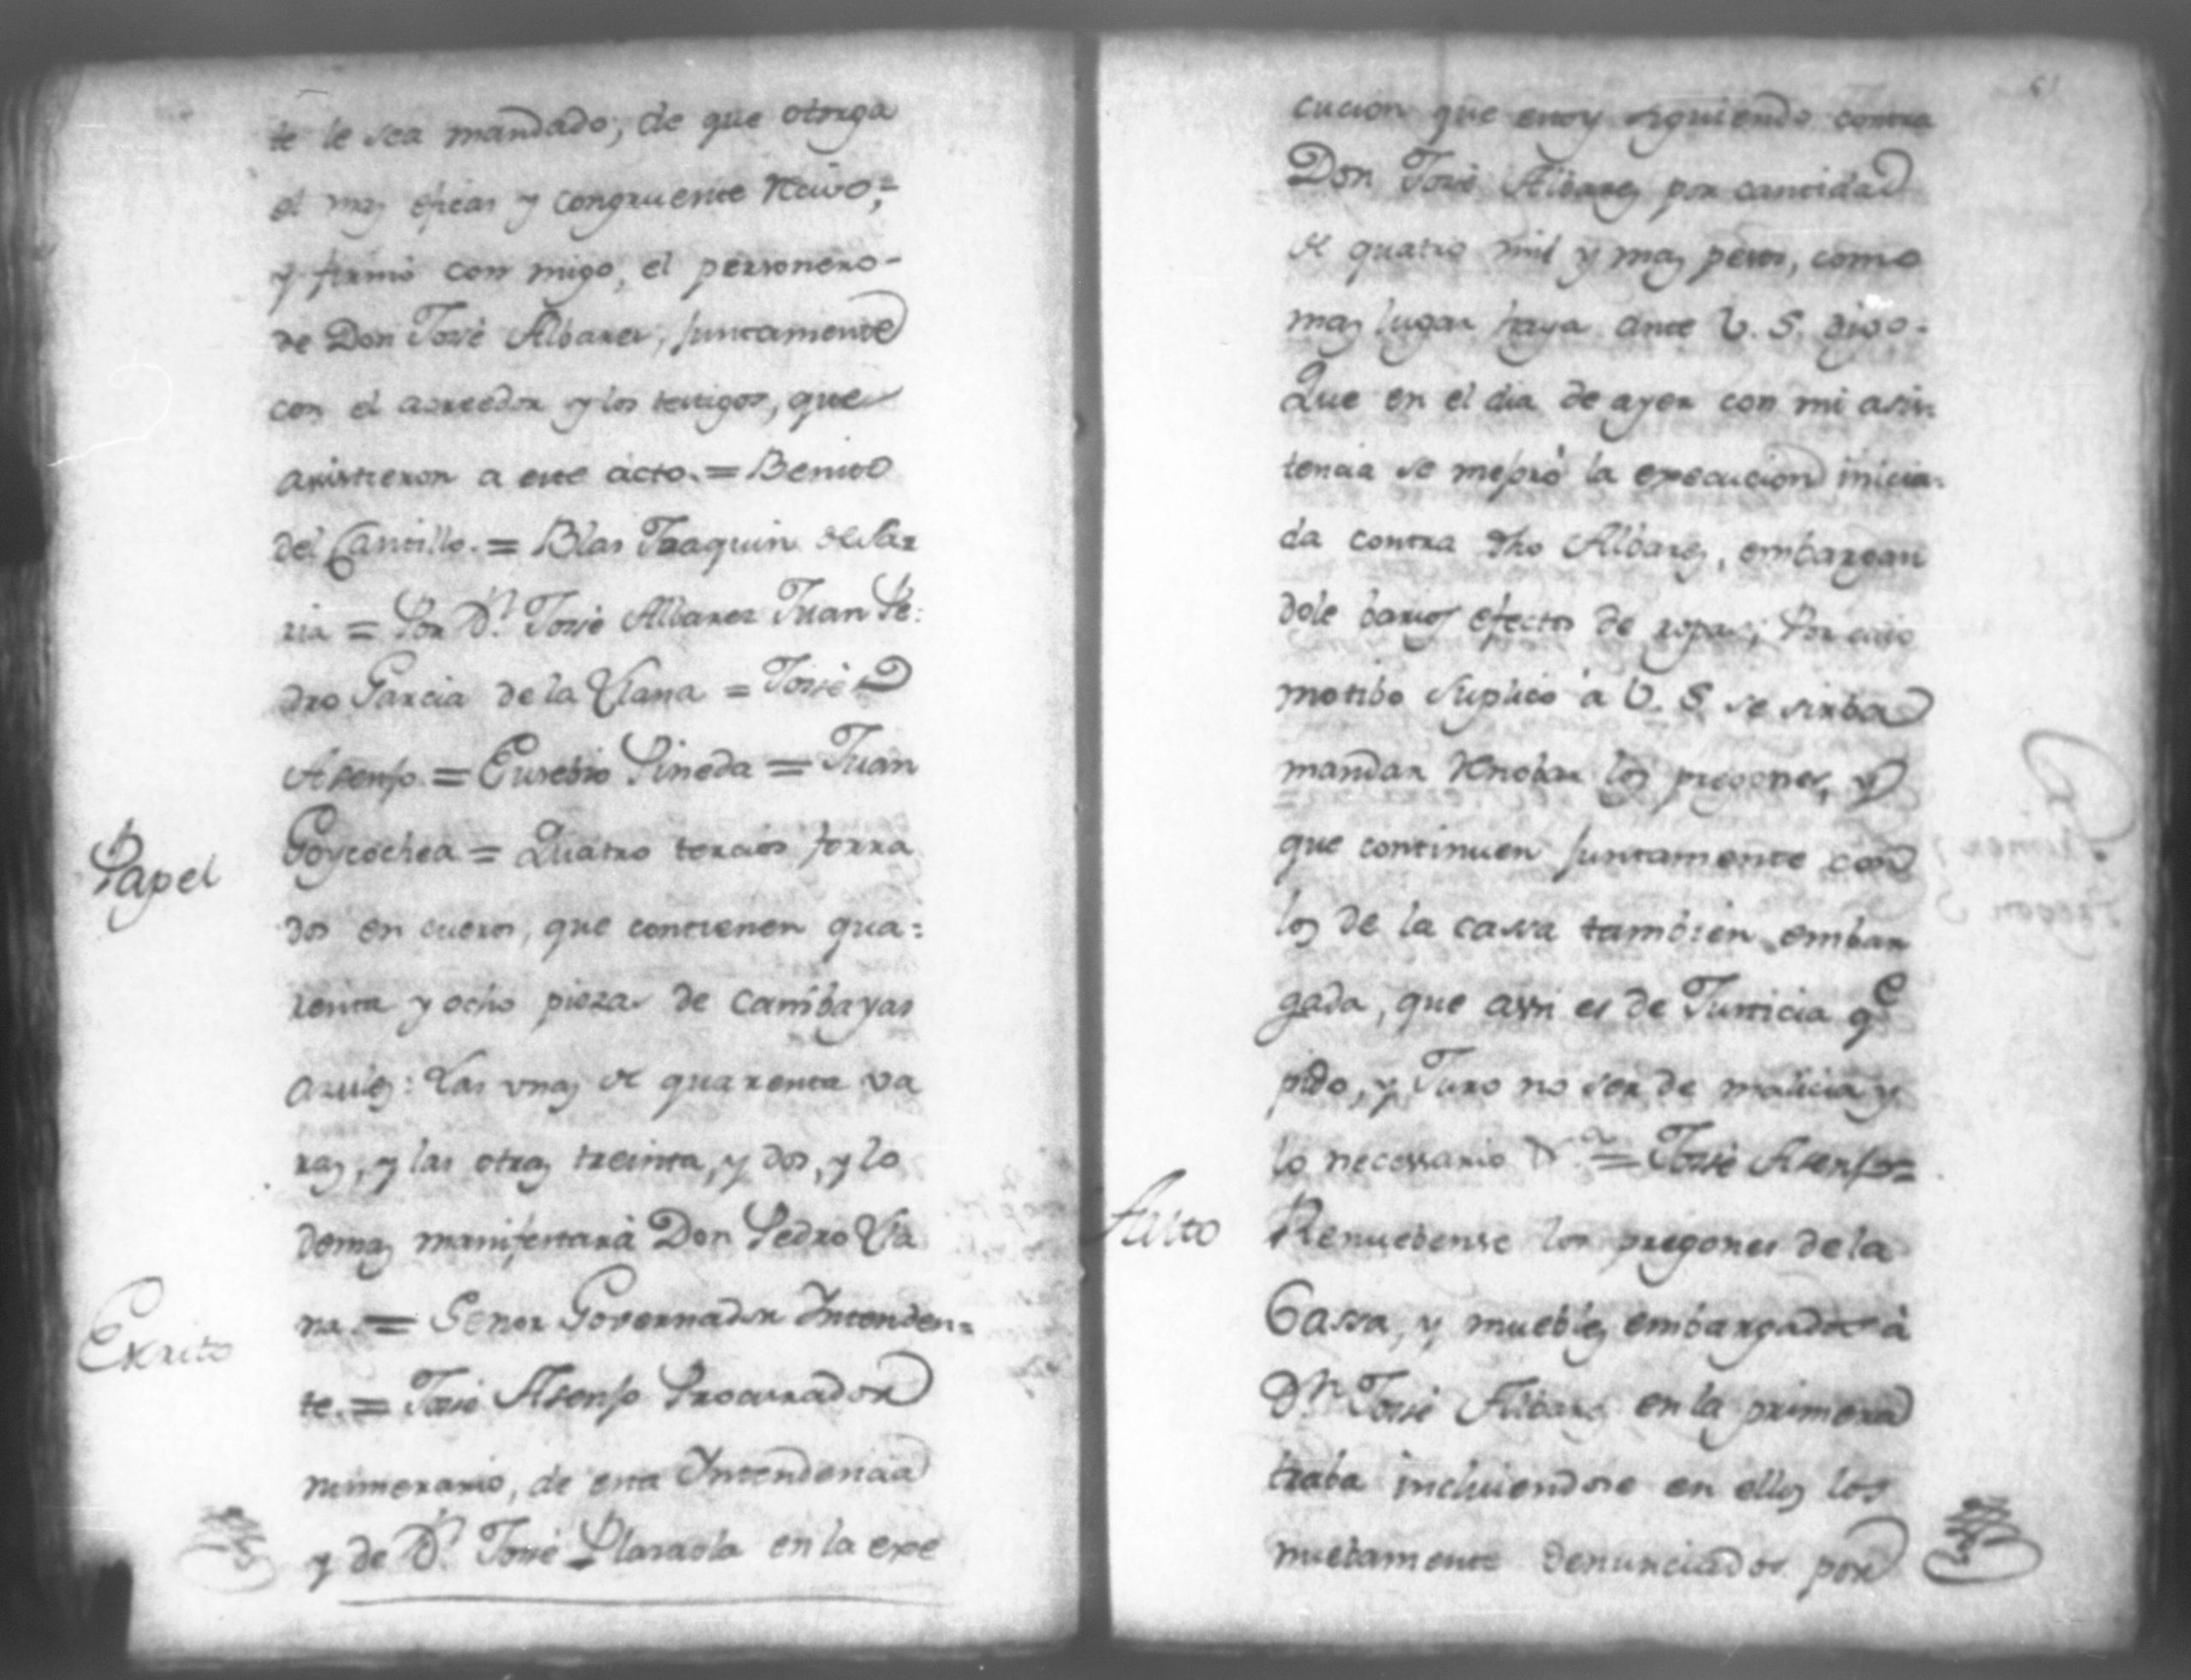 te le sea mandado, de que otorga
el mas eficas y congruente Recivo,=
y firmó con migo, el personero-
de Don José Albarez, juntamente
con el acreedor y los testigos, que
asistieron a este acto. = Benito
del Castillo. = Blas Joaquin de la
ria = Por D.n José Albares Juan Pe:
dro Garcia de la Vlana = José
Asenjo. = Eusebio Pineda = Juan
Papel
Goycochea = Quatro tercios forra
dos en cueros, que contienen qua:
renta y ocho piezas de Cambayas
azules: Las unas de quarenta va
ras, y las otras treinta, y dos, y lo
demas manifestará Don Pedro Vla
na. = Señor Governador Intenden=
Escrito
te. = José Asenjo Procurador
numerario, de esta Intendencia
y de D.n José Plasaola en la exe
61
cucion que estoy siguiendo contra
Don José Albares por cantidad
de quatro mil y mas pesos, como
mas lugar haya ante V. S. digo-
Que en el dia de ayer con mi asis-
tencia se mejoró la execucion inicia-
da contra dho Albares, embargan
dole barios efectos de ropas; Por cuio
motibo suplico á V. S. se sirba
mandar Renobar los pregones, y
que continuen juntamente con
los de la cassa tambien embar
gada, que assi es de Justicia q.e
pido, y Juro no ser de malicia y
lo necessario &.a = José Asenjo=
Auto
Renuebense los pregones de la
Cassa, y muebles embargados á
D.n José Albares en la primera
traba incluiendose en ellos los
nuebamente denunciados por